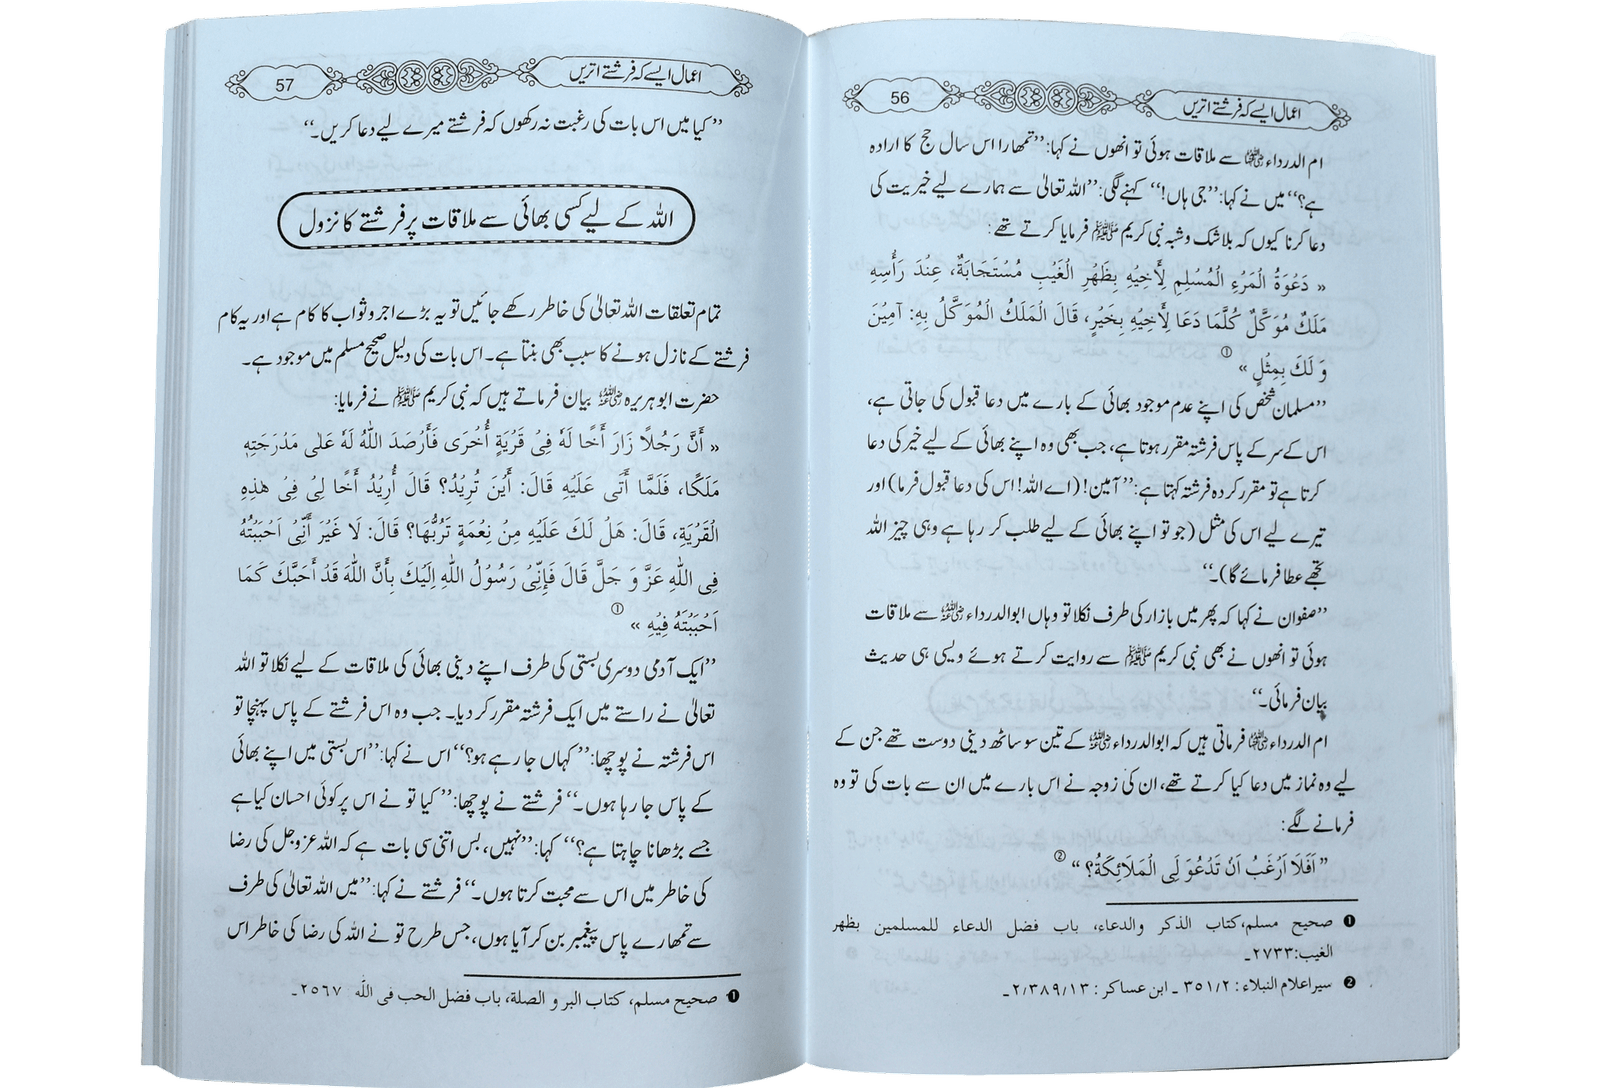 اعمال ایسے کہ فرشتے اتریں
56
ام الدرداء رضی اللہ عنہا سے ملاقات ہوئی تو انھوں نے کہا: ’’تمھارا اس سال حج کا ارادہ
ہے؟‘‘ میں نے کہا: ’’جی ہاں!‘‘ کہنے لگی: ’’اللہ تعالیٰ سے ہمارے لیے خیریت کی
دعا کرنا کیوں کہ بلاشک و شبہ نبی کریم ﷺ فرمایا کرتے تھے:
« دَعْوَةُ الْمَرْءِ الْمُسْلِمِ لِأَخِيْهِ بِظَهْرِ الْغَيْبِ مُسْتَجَابَةٌ، عِنْدَ رَأْسِهِ
مَلَكٌ مُوَكَّلٌ كُلَّمَا دَعَا لِأَخِيْهِ بِخَيْرٍ، قَالَ الْمَلَكُ الْمُوَكَّلُ بِهِ: آمِيْنَ
وَ لَكَ بِمِثْلٍ » ①
’’مسلمان شخص کی اپنے عدم موجود بھائی کے بارے میں دعا قبول کی جاتی ہے،
اس کے سر کے پاس فرشتہ مقرر ہوتا ہے، جب بھی وہ اپنے بھائی کے لیے خیر کی دعا
کرتا ہے تو مقرر کردہ فرشتہ کہتا ہے: ’’آمین! (اے اللہ! اس کی دعا قبول فرما) اور
تیرے لیے اس کی مثل (جو تو اپنے بھائی کے لیے طلب کر رہا ہے وہی چیز اللہ
تجھے عطا فرمائے گا)۔‘‘
’’صفوان نے کہا کہ پھر میں بازار کی طرف نکلا تو وہاں ابوالدرداء رضی اللہ عنہ سے ملاقات
ہوئی تو انھوں نے بھی نبی کریم ﷺ سے روایت کرتے ہوئے ویسی ہی حدیث
بیان فرمائی۔‘‘
ام الدرداء رضی اللہ عنہا فرماتی ہیں کہ ابوالدرداء رضی اللہ عنہ کے تین سو ساٹھ دینی دوست تھے جن کے
لیے وہ نماز میں دعا کیا کرتے تھے، ان کی زوجہ نے اس بارے میں ان سے بات کی تو وہ
فرمانے لگے:
’’ اَفَلَا اَرْغَبُ اَنْ تَدْعُوَ لِى الْمَلَائِكَةُ؟ ‘‘ ②
❶ صحيح مسلم، كتاب الذكر والدعاء، باب فضل الدعاء للمسلمين بظهر
الغيب: ٢٧٣٣۔
❷ سير اعلام النبلاء: ٣٥١/٢ ۔ ابن عساكر: ٢/٣٨٩/١٣۔
اعمال ایسے کہ فرشتے اتریں
57
’’کیا میں اس بات کی رغبت نہ رکھوں کہ فرشتے میرے لیے دعا کریں۔‘‘
اللہ کے لیے کسی بھائی سے ملاقات پر فرشتے کا نزول
تمام تعلقات اللہ تعالیٰ کی خاطر رکھے جائیں تو یہ بڑے اجر و ثواب کا کام ہے اور یہ کام
فرشتے کے نازل ہونے کا سبب بھی بنتا ہے۔ اس بات کی دلیل صحیح مسلم میں موجود ہے۔
حضرت ابو ہریرہ رضی اللہ عنہ بیان فرماتے ہیں کہ نبی کریم ﷺ نے فرمایا:
« أَنَّ رَجُلًا زَارَ أَخًا لَهُ فِيْ قَرْيَةٍ أُخْرَى فَأَرْصَدَ اللّٰهُ لَهُ عَلٰى مَدْرَجَتِهٖ
مَلَكًا، فَلَمَّا أَتَى عَلَيْهِ قَالَ: أَيْنَ تُرِيْدُ؟ قَالَ أُرِيْدُ أَخًا لِىْ فِىْ هٰذِهِ
الْقَرْيَةِ، قَالَ: هَلْ لَكَ عَلَيْهِ مِنْ نِعْمَةٍ تَرُبُّهَا؟ قَالَ: لَا غَيْرَ أَنِّىْ اَحْبَبْتُهُ
فِى اللّٰهِ عَزَّ وَ جَلَّ قَالَ فَإِنِّىْ رَسُوْلُ اللّٰهِ إِلَيْكَ بِأَنَّ اللّٰهَ قَدْ أَحَبَّكَ كَمَا
اَحْبَبْتَهُ فِيْهِ » ①
’’ایک آدمی دوسری بستی کی طرف اپنے دینی بھائی کی ملاقات کے لیے نکلا تو اللہ
تعالیٰ نے راستے میں ایک فرشتہ مقرر کر دیا۔ جب وہ اس فرشتے کے پاس پہنچا تو
اس فرشتہ نے پوچھا: ’’کہاں جا رہے ہو؟‘‘ اس نے کہا: ’’اس بستی میں اپنے بھائی
کے پاس جا رہا ہوں۔‘‘ فرشتے نے پوچھا: ’’کیا تو نے اس پر کوئی احسان کیا ہے
جسے بڑھانا چاہتا ہے؟‘‘ کہا: ’’نہیں، بس اتنی سی بات ہے کہ اللہ عزوجل کی رضا
کی خاطر میں اس سے محبت کرتا ہوں۔‘‘ فرشتے نے کہا: ’’میں اللہ تعالیٰ کی طرف
سے تمھارے پاس پیغمبر بن کر آیا ہوں، جس طرح تو نے اللہ کی رضا کی خاطر اس
❶ صحيح مسلم، كتاب البر و الصلة، باب فضل الحب فى الله ٢٥٦٧۔